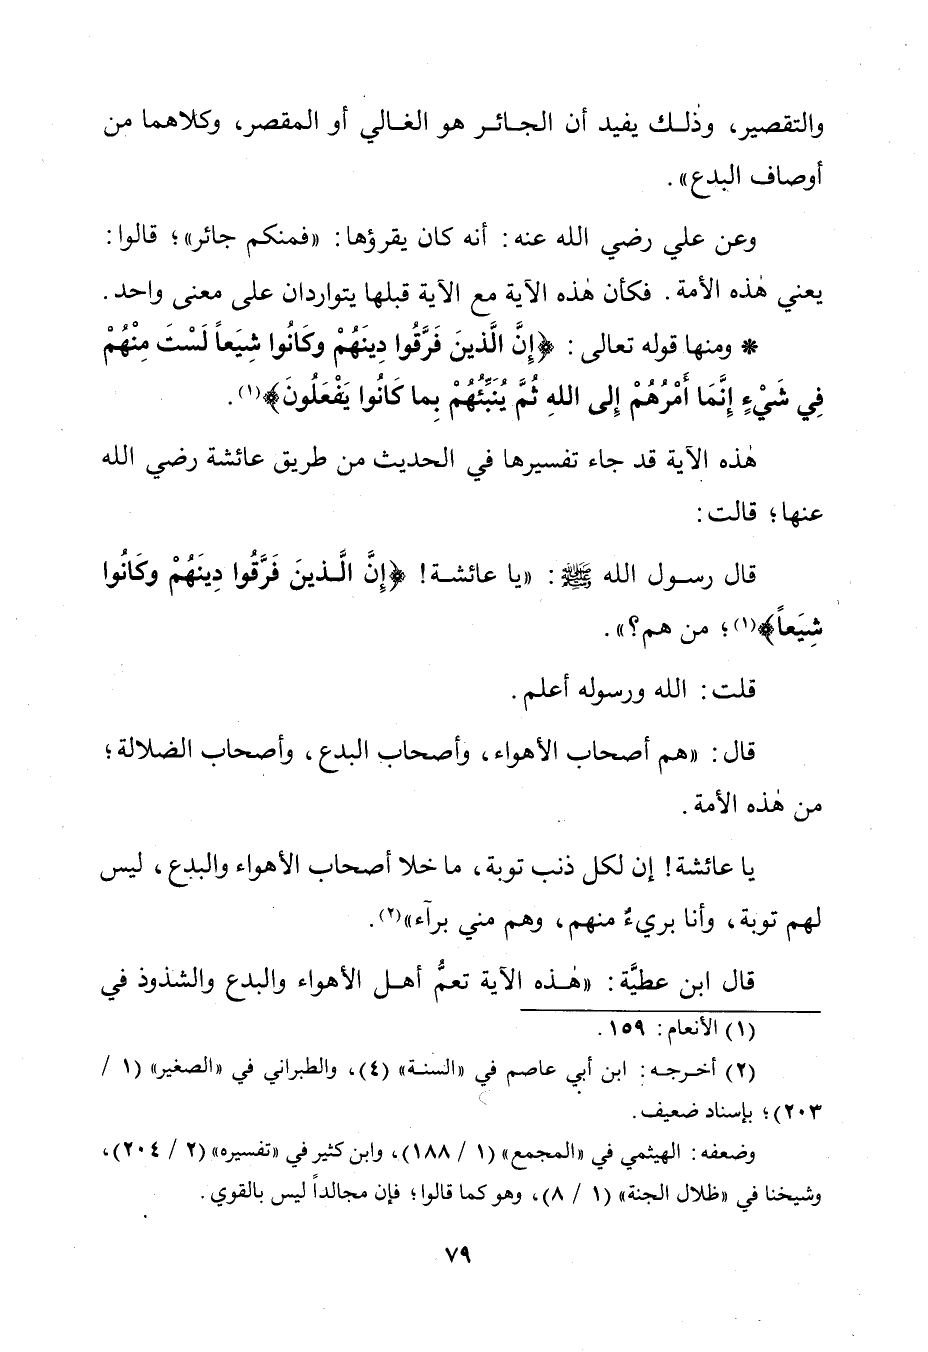 والتقصير، وذٰلك يفيد أن الجائر هو الغالي أو المقصر، وكلاهما من
أوصاف البدع».
وعن علي رضي الله عنه: أنه كان يقرؤها: «فمنكم جائر»؛ قالوا:
يعني هٰذه الأمة. فكأن هٰذه الآية مع الآية قبلها يتواردان على معنى واحد.
* ومنها قوله تعالى: ﴿إِنَّ الَّذينَ فَرَّقُوا دِينَهُمْ وكَانُوا شِيَعاً لَسْتَ مِنْهُمْ
فِي شَيْءٍ إِنَّمَا أَمْرُهُمْ إِلى اللهِ ثُمَّ يُنَبِّئُهُمْ بِما كَانُوا يَفْعَلُونَ﴾(١).
هٰذه الآية قد جاء تفسيرها في الحديث من طريق عائشة رضي الله
عنها؛ قالت:
قال رسول الله ﷺ: «يا عائشة! ﴿إِنَّ الَّذينَ فَرَّقُوا دِينَهُمْ وكَانُوا
شِيَعاً﴾(١)؛ من هم؟».
قلت: الله ورسوله أعلم.
قال: «هم أصحاب الأهواء، وأصحاب البدع، وأصحاب الضلالة؛
من هٰذه الأمة.
يا عائشة! إن لكل ذنب توبة، ما خلا أصحاب الأهواء والبدع، ليس
لهم توبة، وأنا بريءٌ منهم، وهم مني برآء»(٢).
قال ابن عطيَّة: «هٰذه الآية تعمُّ أهل الأهواء والبدع والشذوذ في
(١) الأنعام: ١٥٩.
(٢) أخرجه: ابن أبي عاصم في «السنة» (٤)، والطبراني في «الصغير» (١ /
٢٠٣)؛ بإسناد ضعيف.
وضعفه: الهيثمي في «المجمع» (١ / ١٨٨)، وابن كثير في «تفسيره» (٢ / ٢٠٤)،
وشيخنا في «ظلال الجنة» (١ / ٨)، وهو كما قالوا؛ فإن مجالداً ليس بالقوي.
٧٩